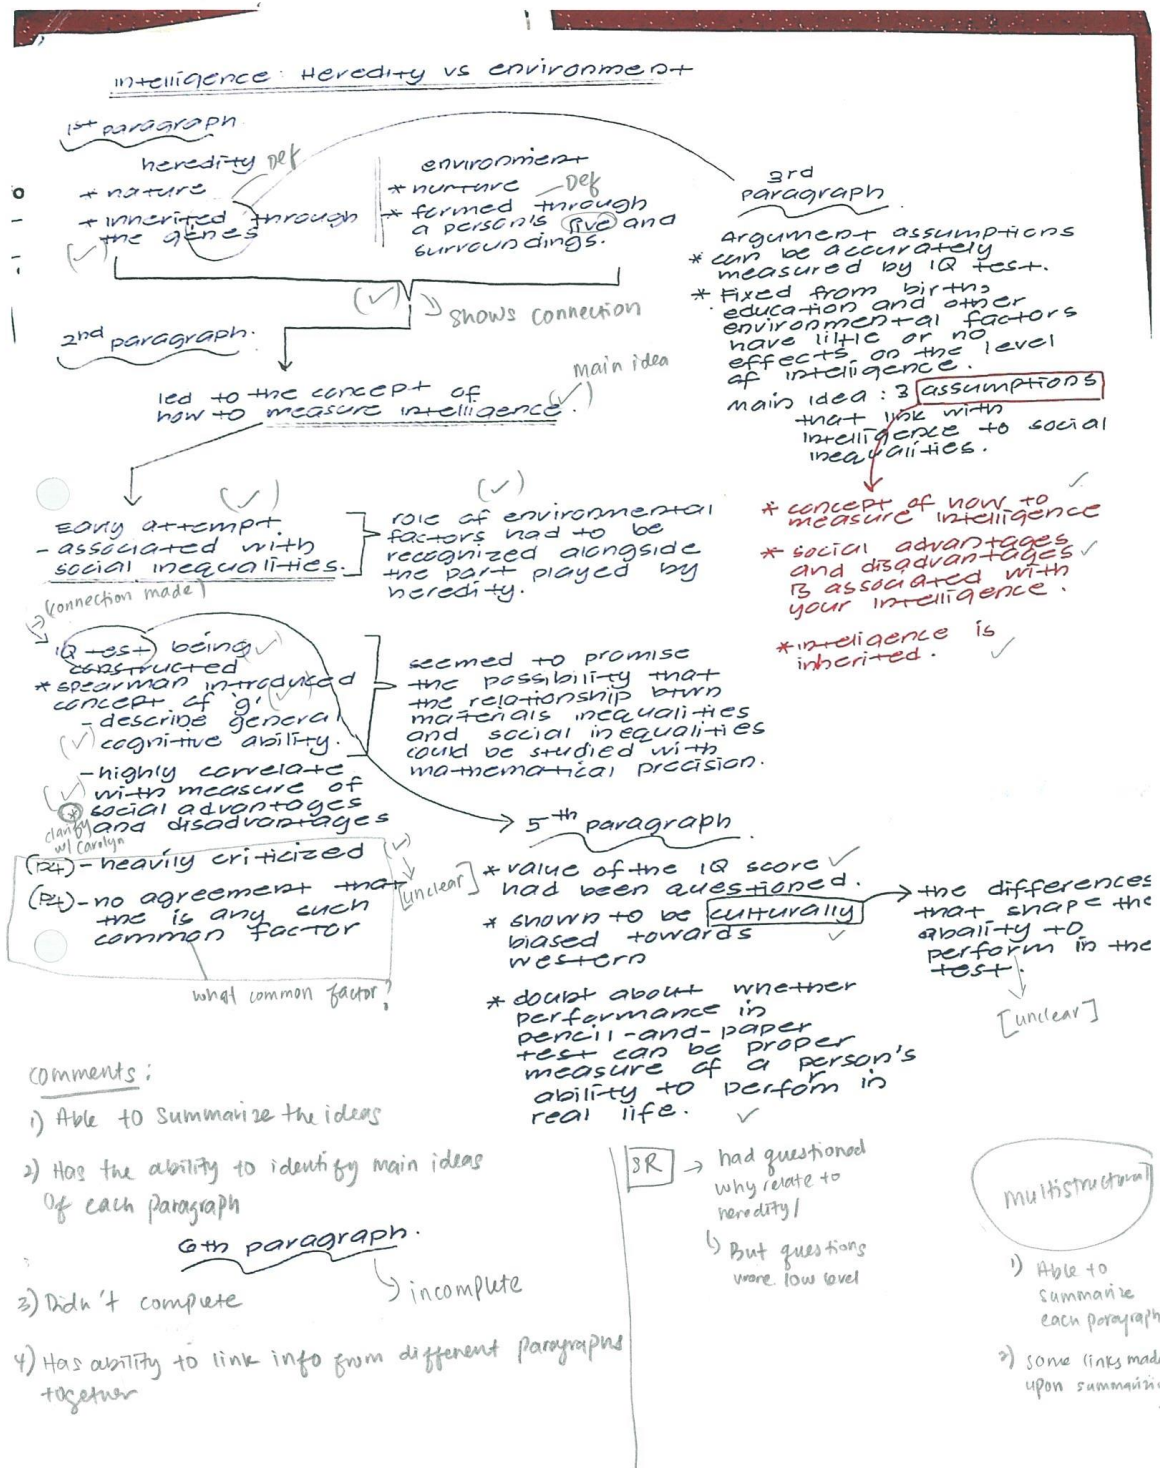 intelligence: Heredity vs environment
1st paragraph
heredity Def
* nature
* inherited through
the genes
(✓)
environment
* nurture Def
* formed through
a person's live and
surroundings.
(✓) shows connection
2nd paragraph.
led to the concept of
how to measure intelligence.
(✓) main idea
(✓)
Early attempt.
- associated with
social inequalities.
(✓)
role of environmental
factors had to be
recognized alongside
the part played by
heredity.
(connection made)
IQ test being ✓
constructed
* spearman introduced
concept of 'g' (✓)
- describe general
(✓) cognitive ability.
- highly correlate
(✓) with measure of
* social advantages
and disadvantages
clarify
w/ Carolyn
seemed to promise
the possibility that
the relationship btwn
materials inequalities
and social inequalities
could be studied with
mathematical precision.
(P4) - heavily criticized (✓)
[unclear]
(P4) - no agreement that
the is any such
common factor
what common factor?
3rd
paragraph
Argument assumptions
* can be accurately
measured by IQ test.
* Fixed from birth,
education and other
environmental factors
have little or no
effects on the level
of intelligence.
main idea : 3 assumptions
that link with
intelligence to social
inequalities.
* concept of how to ✓
measure intelligence
* social advantages
and disadvantages ✓
is associated with
your intelligence.
* inteligence is
inherited. ✓
5th paragraph
* value of the IQ score ✓
had been questioned.
* shown to be culturally
biased towards ✓
western
the differences
that shape the
abality to
perform in the
test.
[unclear]
* doubt about whether
performance in
pencil-and-paper
test can be proper
measure of a person's
ability to perform in
real life. ✓
comments:
1) Able to summarize the ideas
2) Has the ability to identify main ideas
of each paragraph
6th paragraph.
incomplete
3) Didn't complete
4) Has ability to link info from different paragraphs
together
SR → had questioned
why relate to
heredity/
But questions
were low level
multistructural
1) Able to
summarize
each paragraph
2) some links made
upon summarizin